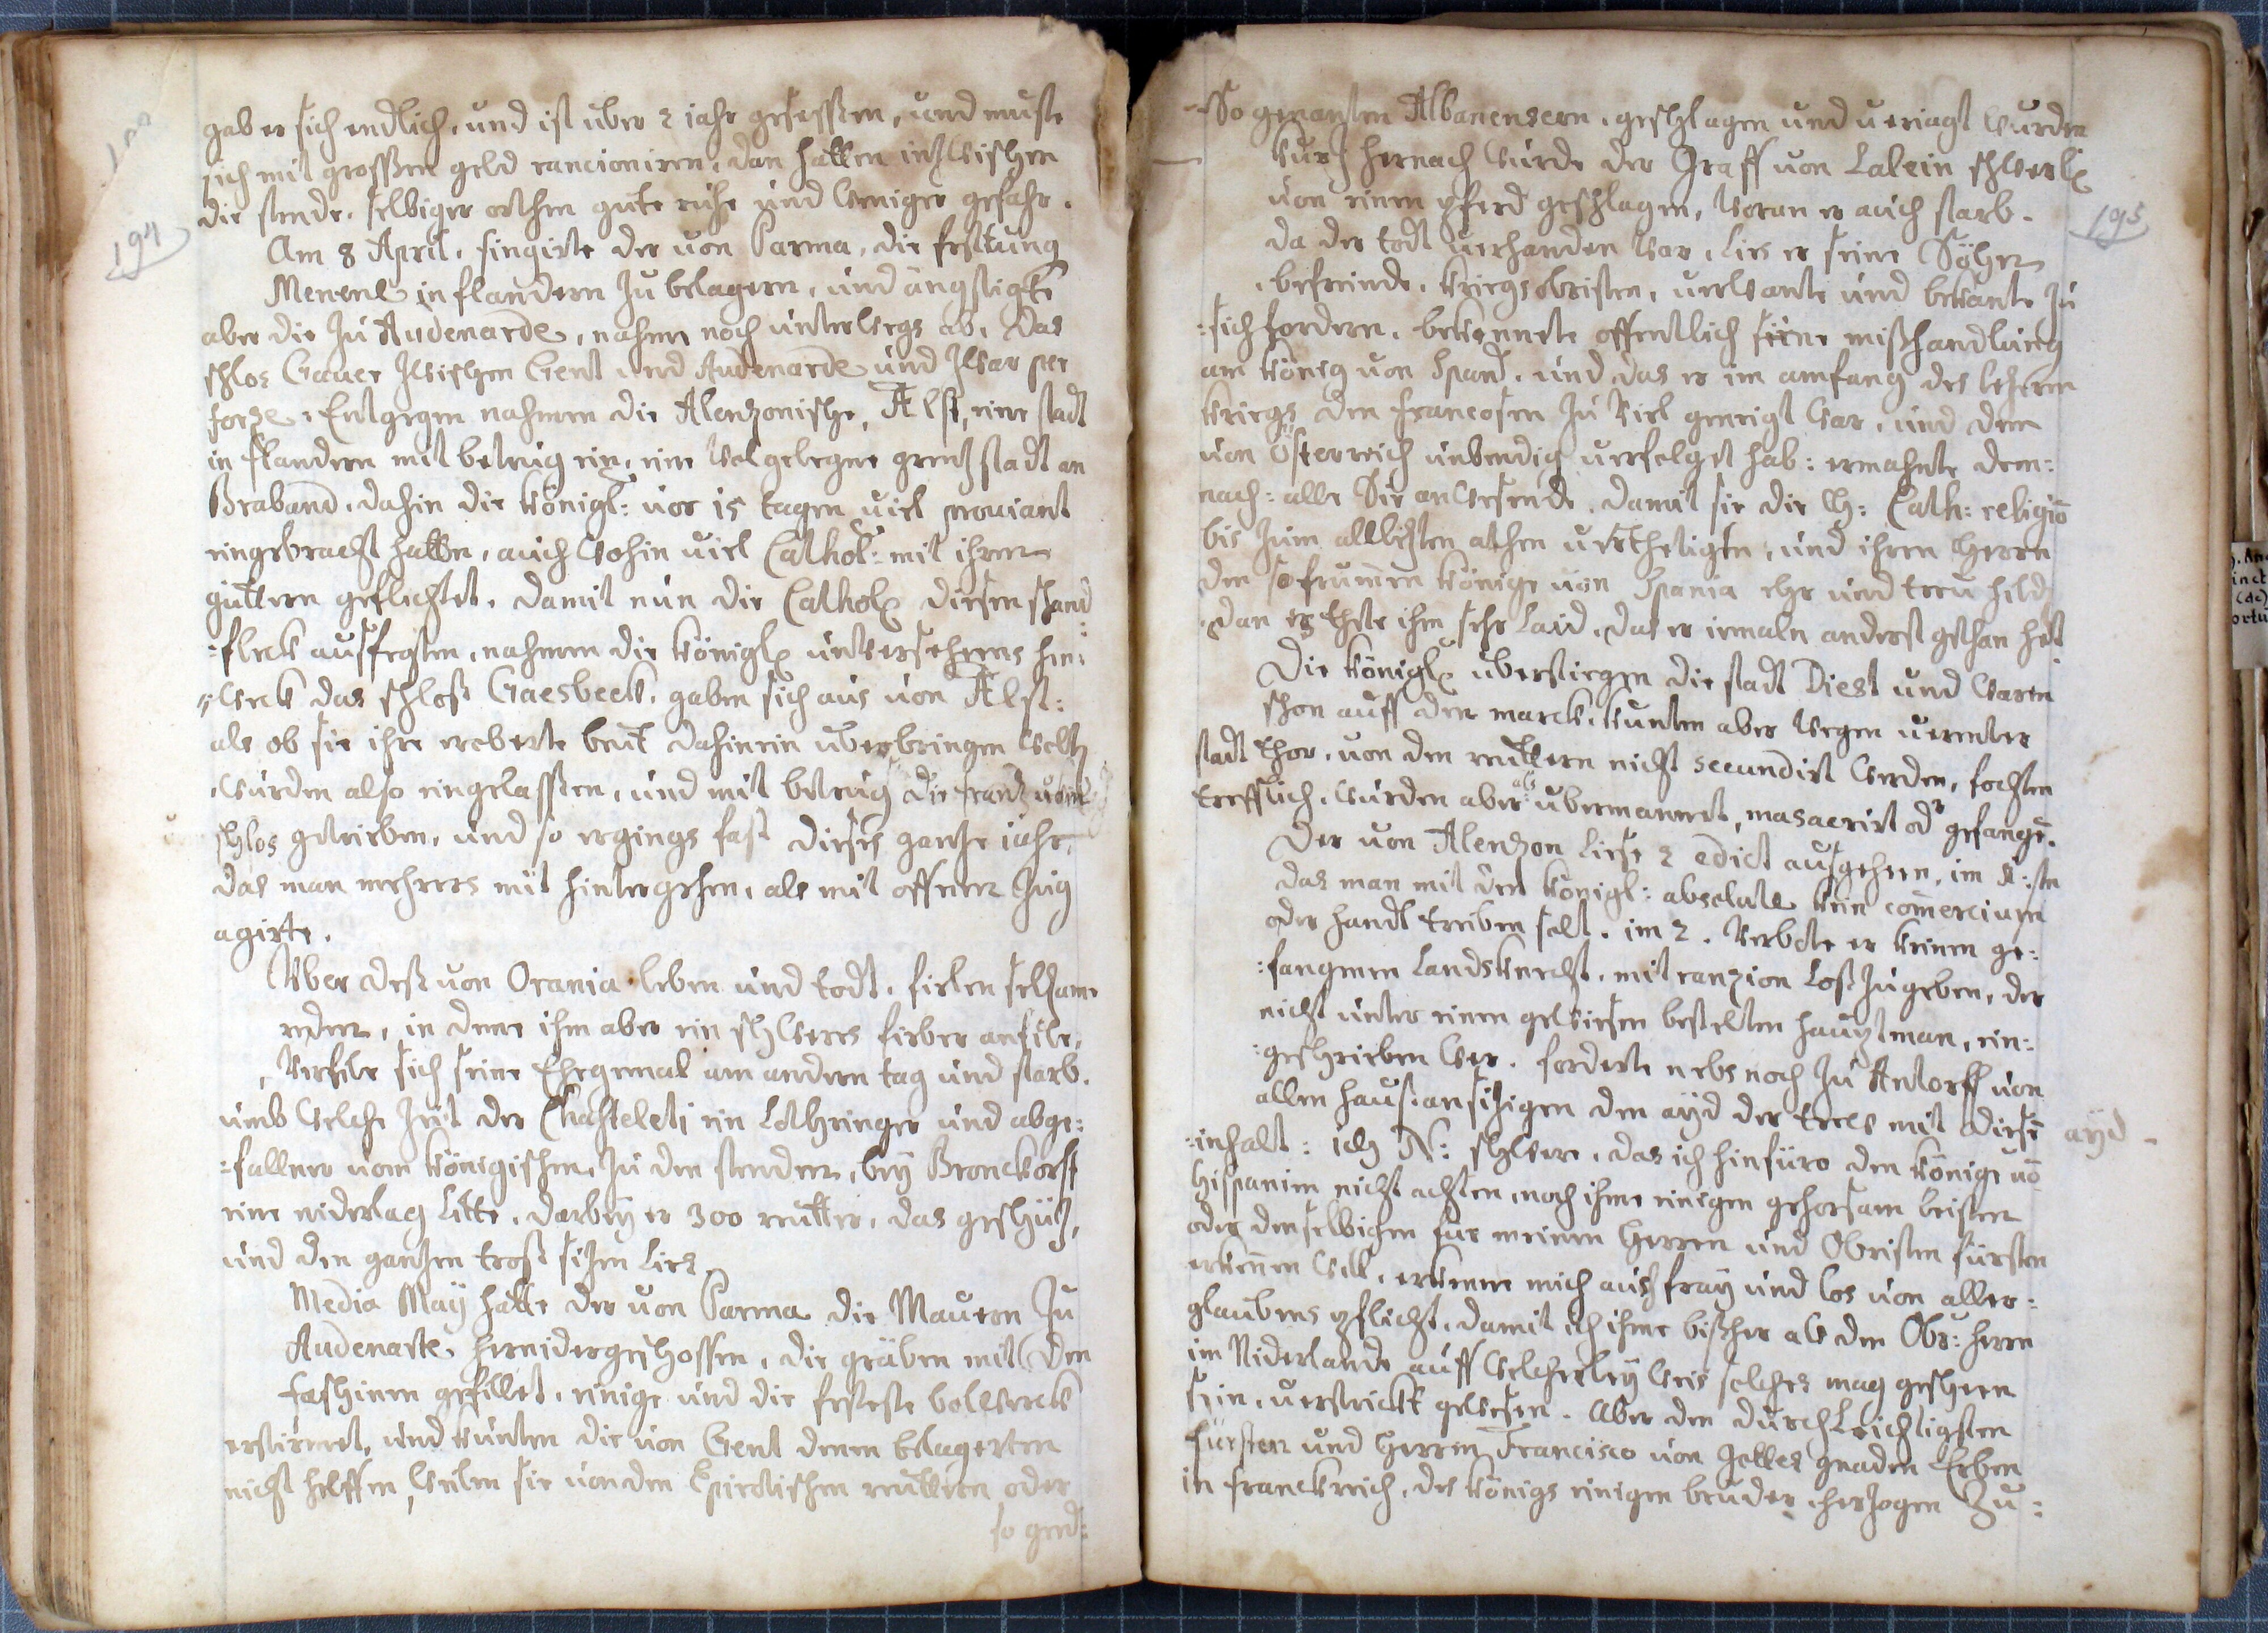 194
gab er sich endlich, und ist uber 2 jahr gesessen, und muste
sich mit grossen geld rancioniren, dan hatten inzwischen
die stende selbiger orthen gute ruhe und weniger gefahr.
Am 8 April, fingirte der von Parma, die festung
Menene in flandern zu belagern, und ängstigte
aber die zu Audenarde, nahme noch unterwegs ab, das
schlos Gauer zwischen Gent und Audenarde und zwar per
forze, Entgegen nahmen die Alenzonische, Alst, eine stadt
in flandern mit betrug ein, eine wolgelegne grentz stadt an
Braband, dahin die Königl: vor 15 tagen viel proviant
eingebracht hatten, auch wohin viel Cathol: mit ihren
güttern geflichtet. damit nun die Cathol diesen schand
:fleck ausfegten, nahmen die Königl unversehens hin:
:weck das schloß Gaesbeek, gaben sich aus von Alst:
als ob sie ihre eroberte beut dahinein uberbringen wolt
wurden also eingelassen, und mit betrug die frantz vom
schlos getrieben, und so ergings fast dieses gantze jahr,
das man mehrers mit hintergehen, als mit offnem Zug
agirte.
Uber deß von Orania leben und todt, fielen seltzame
reden, in deme ihm aber ein schweres fieber anfile,
verfile sich seine Ehegemal am andern tag und starb.
umb welche zeit der Chasteleti ein Lothringer und abge:
:fallner vom königischen, zu den stenden, bey Bronckorst
eine niderlag litte, darbey er 300 reutter, das geschütz,
und den gantzen troß sitzen lies.
Media May hatte der von Parma die Mauern zu
Audenarte hernidergeschossen, die gräben mit den
faschinen gefillet, einige und die festeste bollwerck
erstirmet, und kunten die von Gent denen belagerten
nicht helffen, weilen sie von den Epirotischen reuttern oder
so gend:
So genanten Albanensern, geschlagen und veriagt wurden
Kurtz hernach wurde der Graff von Lalein schwerl
von einem pferd geschlagen, woran er auch starb.
da der todt verhanden war, lies er seine Söhn
befreinde, kriegsobristen, verwante und bekante zu
195
:sich fordern, bekennete offentlich seine mißhandlung
am König von Span. und das er im anfang des lehren
kriegs den francosen zu viel geneigt war, und den
von Österreich unbendig verfolget hab: ermahnte dem:
nach: alle die anwesende, damit sie die H: Cath: religio
bis zum alletzten athen vertheligten, und ihren Herrn
den so frummen Könige von Spania ehr und treu hild
dan es thete ihm sehr laid, das er iemaln anderst gethan het
Die Königl uberstiegen die stadt Diest und waren
schon auff den marck, kunten aber wegen vermter
stadt thor, von den reuttern nicht secundirt werden, fochten
trefflich, wurden aber als ubermannet, masacrirt od gefange.
Der von Alenzon liese 2 edict ausgehen, im 1:sten
das man mit den Königl: absolute kein comercium
oder handl treiben solt. im 2. verbote er keinen ge:
:fangenen Landsknecht, mit ranzion loß zugeben, der
nicht unter einen gewiesen bestelten hauptman, ein:
:geschrieben wer. forderte nebs noch zu Antorff von
allen haußansitzigen den ayd der treu mit diesen
ayd
:inhalt: ich N: schwere, das ich hinfüro den Könige vo
Hispanien nicht achten, noch ihme einigen gehorsam leisten
oder denselbigen fur meinen Herren und Obristen fürsten
erkennen will, erkenne mich auch fray und los von aller:
glaubens pflicht, damit ich ihme bißher als den Obr: herrn
im Niderlande auff welcherley weis solches mag geschen
sein, verstrickt gewesen. Aber den Durchleichtigsten
fürsten und Herren Francisco von Gottes gnaden Erben
in franckreich, des Königs einigen bruder, hertzogen zu: